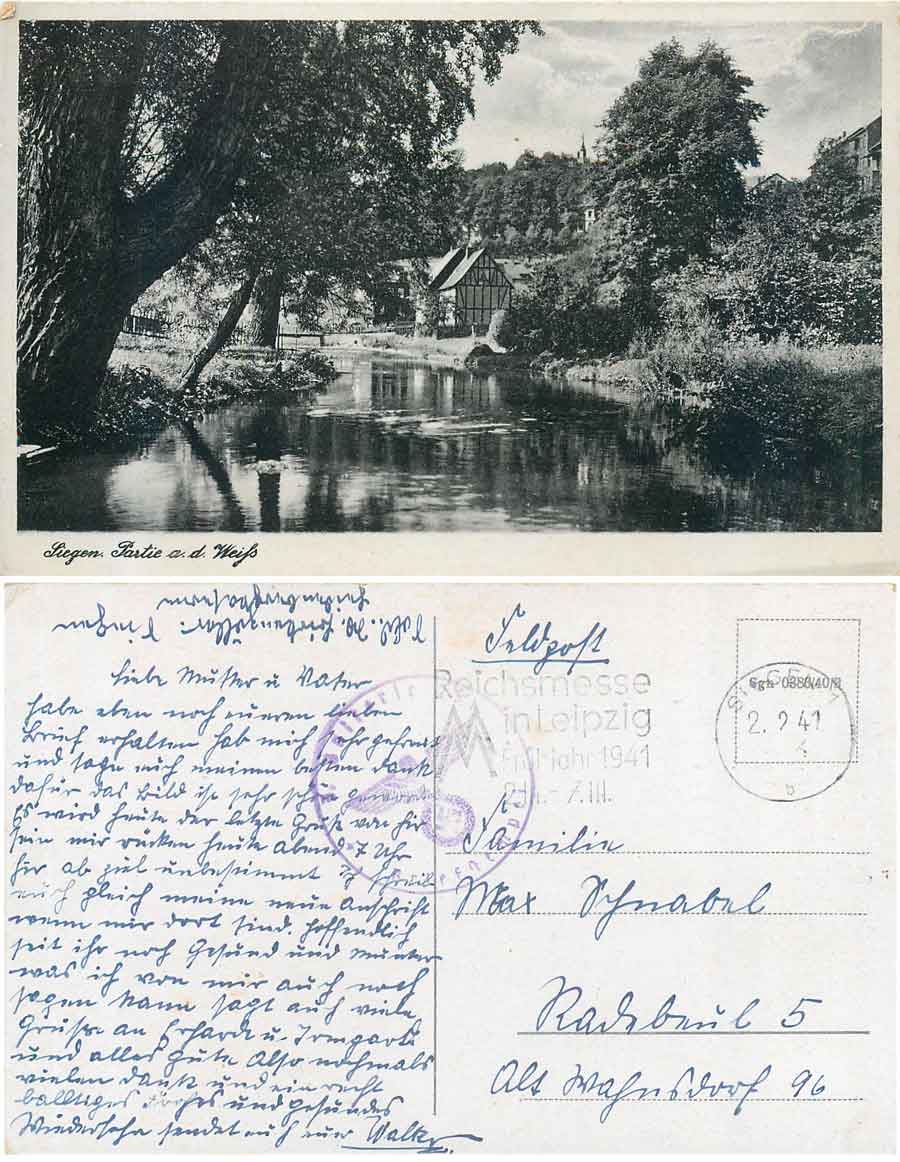 Siegen. Partie a. d. Weiß
Feldpost
Reichsmesse
in Leipzig
Frühjahr 1941
7. III.
2. 2 41
Liebe Mutter u Vater
habe eben noch eueren lieben
Brief erhalten hab mich sehr gefreut
und sage euch meinen besten Dank
dafür das Bild ist sehr schön geworden
Es wird heute der letzte Gruß von hir
sein mir rücken heute Abend 7 Uhr
hir ab ziel unbestimmt schreib
euch gleich meine neue Anschrift
wenn mir dort sind. hoffendlich
seit ihr noch Gesund und Munter
was ich von mir auch noch
sagen kann sagt auch viele
Grüsse an Erhardt u. Irmgard
und alles gute Also nochmals
vielen Dank und ein recht
balltiges und gesundes
Wiedersehn sendet euch euer
Familie
Max Schnabel
Radebeul 5
Alt Wahnsdorf 96